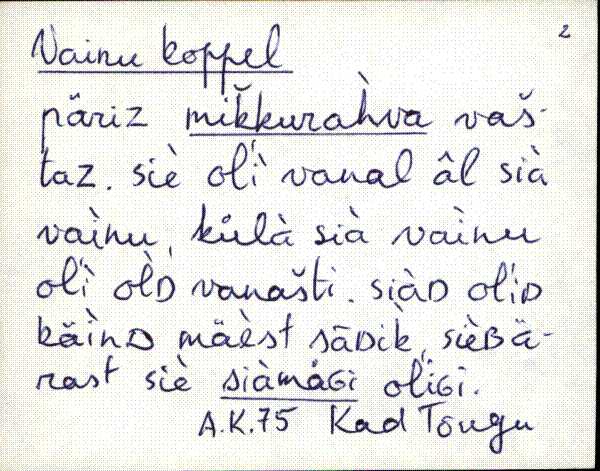 2
Vainu koppel
päriz mik̆kurahva vaš-
taz. siè oĺì vanal âl sià
vaìnu, kùlà sià vaìnu
oĺì òlD vanašti. siàD oĺiD
käìnD mäèst sāDìk, sièBä-
rast siè siàmäGi oliGi.
A.K.75 Kad Tõugu